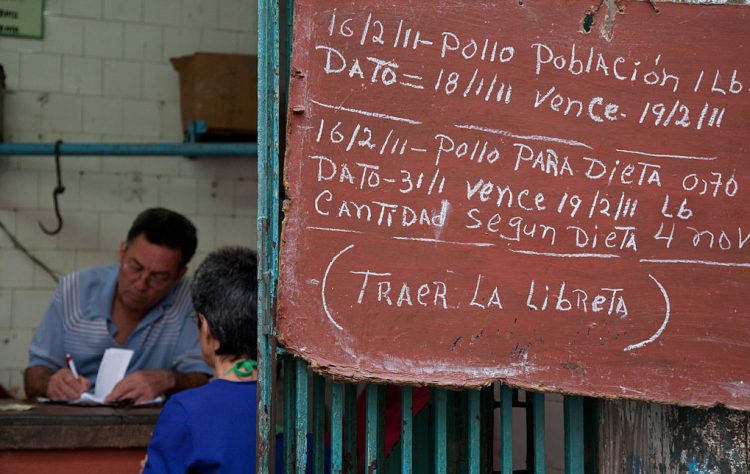 16/2/11-Pollo Población 1Lb
DATO=18/1/11 Vence-19/2/11
16/2/11-Pollo PARA DIETA 0,70
DATO-31/1 vence 19/2/11 Lb
CANTIDAD segun DIETA 4 nov
(TRAER LA LibRETA)